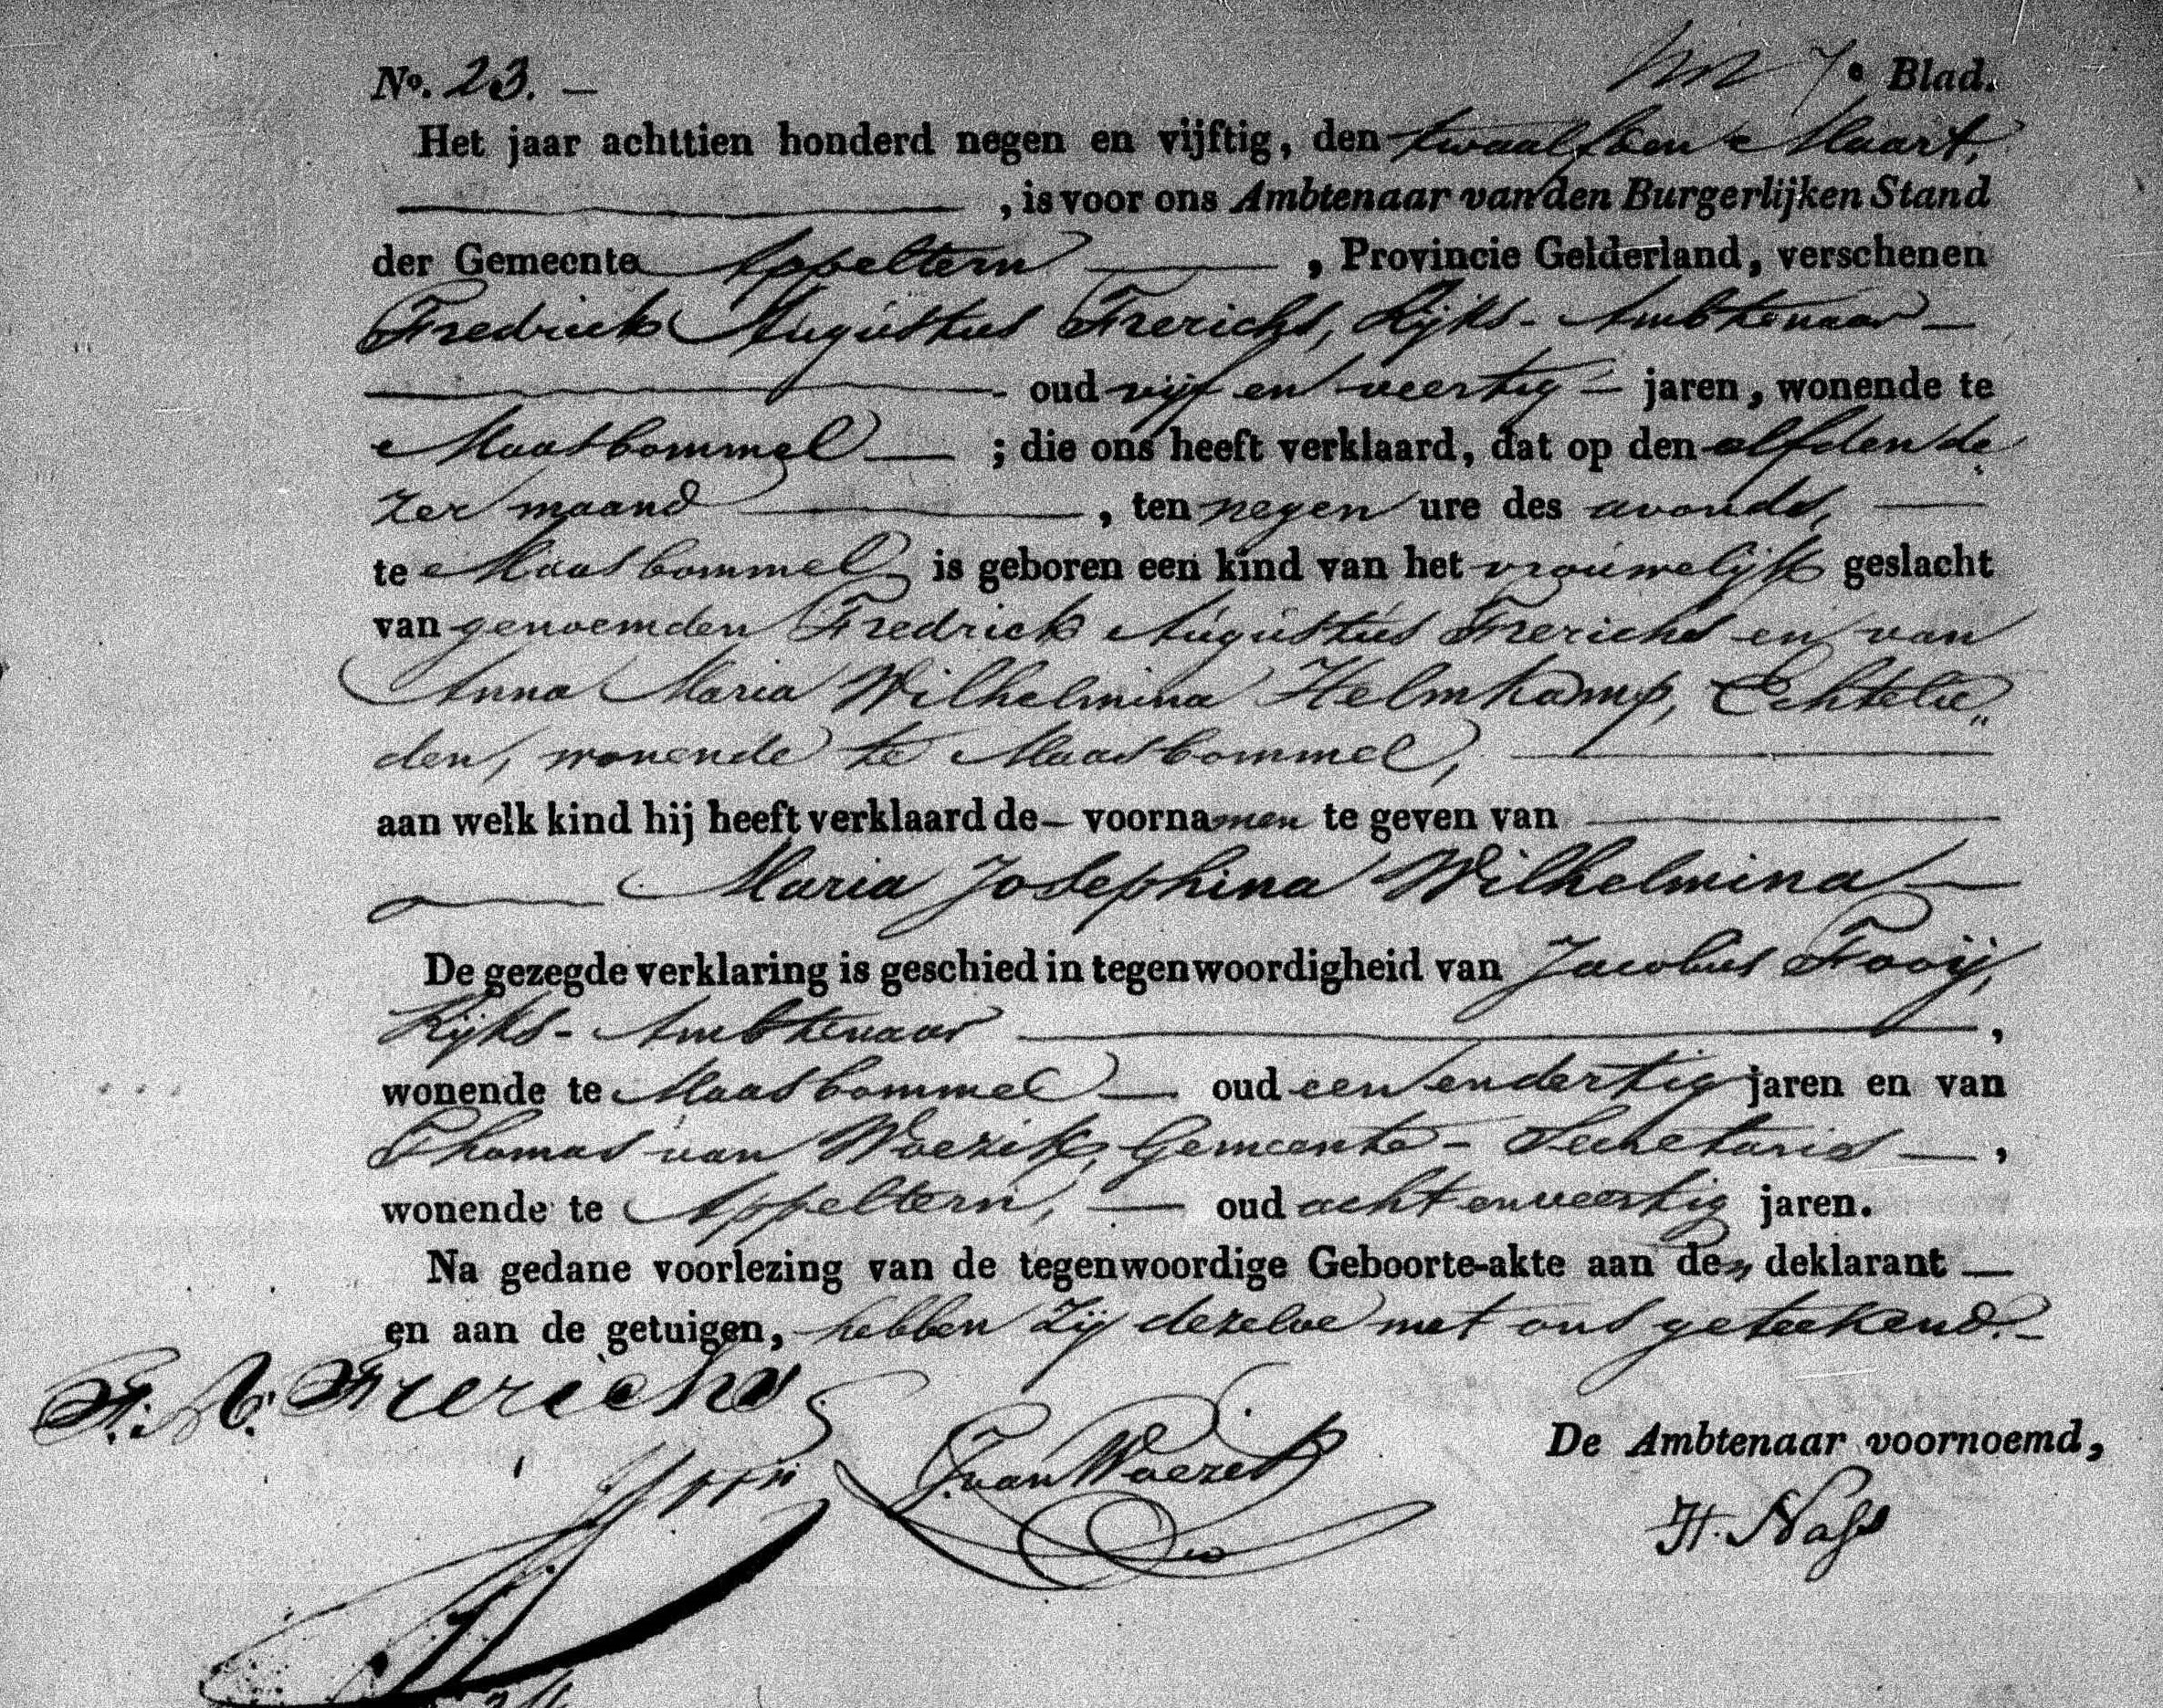 No. 23. — 7e Blad.
Het jaar achttien honderd negen en vijftig, den twaalfden Maart,
, is voor ons Ambtenaar van den Burgerlijken Stand
der Gemeente Appeltern —, Provincie Gelderland, verschenen
Fredrick Augustus Frerichs, Rijks-Ambtenaar —
— oud vijf en veertig — jaren, wonende te
Maasbommel — ; die ons heeft verklaard, dat op den elfden de
zer maand —, ten negen ure des avonds, —
te Maasbommel is geboren een kind van het vrouwelijk geslacht
van genoemden Fredrick Augustus Frerichs en van
Anna Maria Wilhelmina Helmkamp, Echtelie„
den, wonende te Maasbommel, —
aan welk kind hij heeft verklaard de — voornamen te geven van —
— Maria Josephina Wilhelmina —
De gezegde verklaring is geschied in tegenwoordigheid van Jacobus Fooij,
Rijks-Ambtenaar —,
wonende te Maasbommel — oud een en dertig jaren en van
Thomas van Woezik, Gemeente-Secretaris —,
wonende te Appeltern, — oud acht en veertig jaren.
Na gedane voorlezing van de tegenwoordige Geboorte-akte aan den deklarant —
en aan de getuigen, hebben zij dezelve met ons geteekend. —
F. A. Frerichs
T. van Woezik
De Ambtenaar voornoemd,